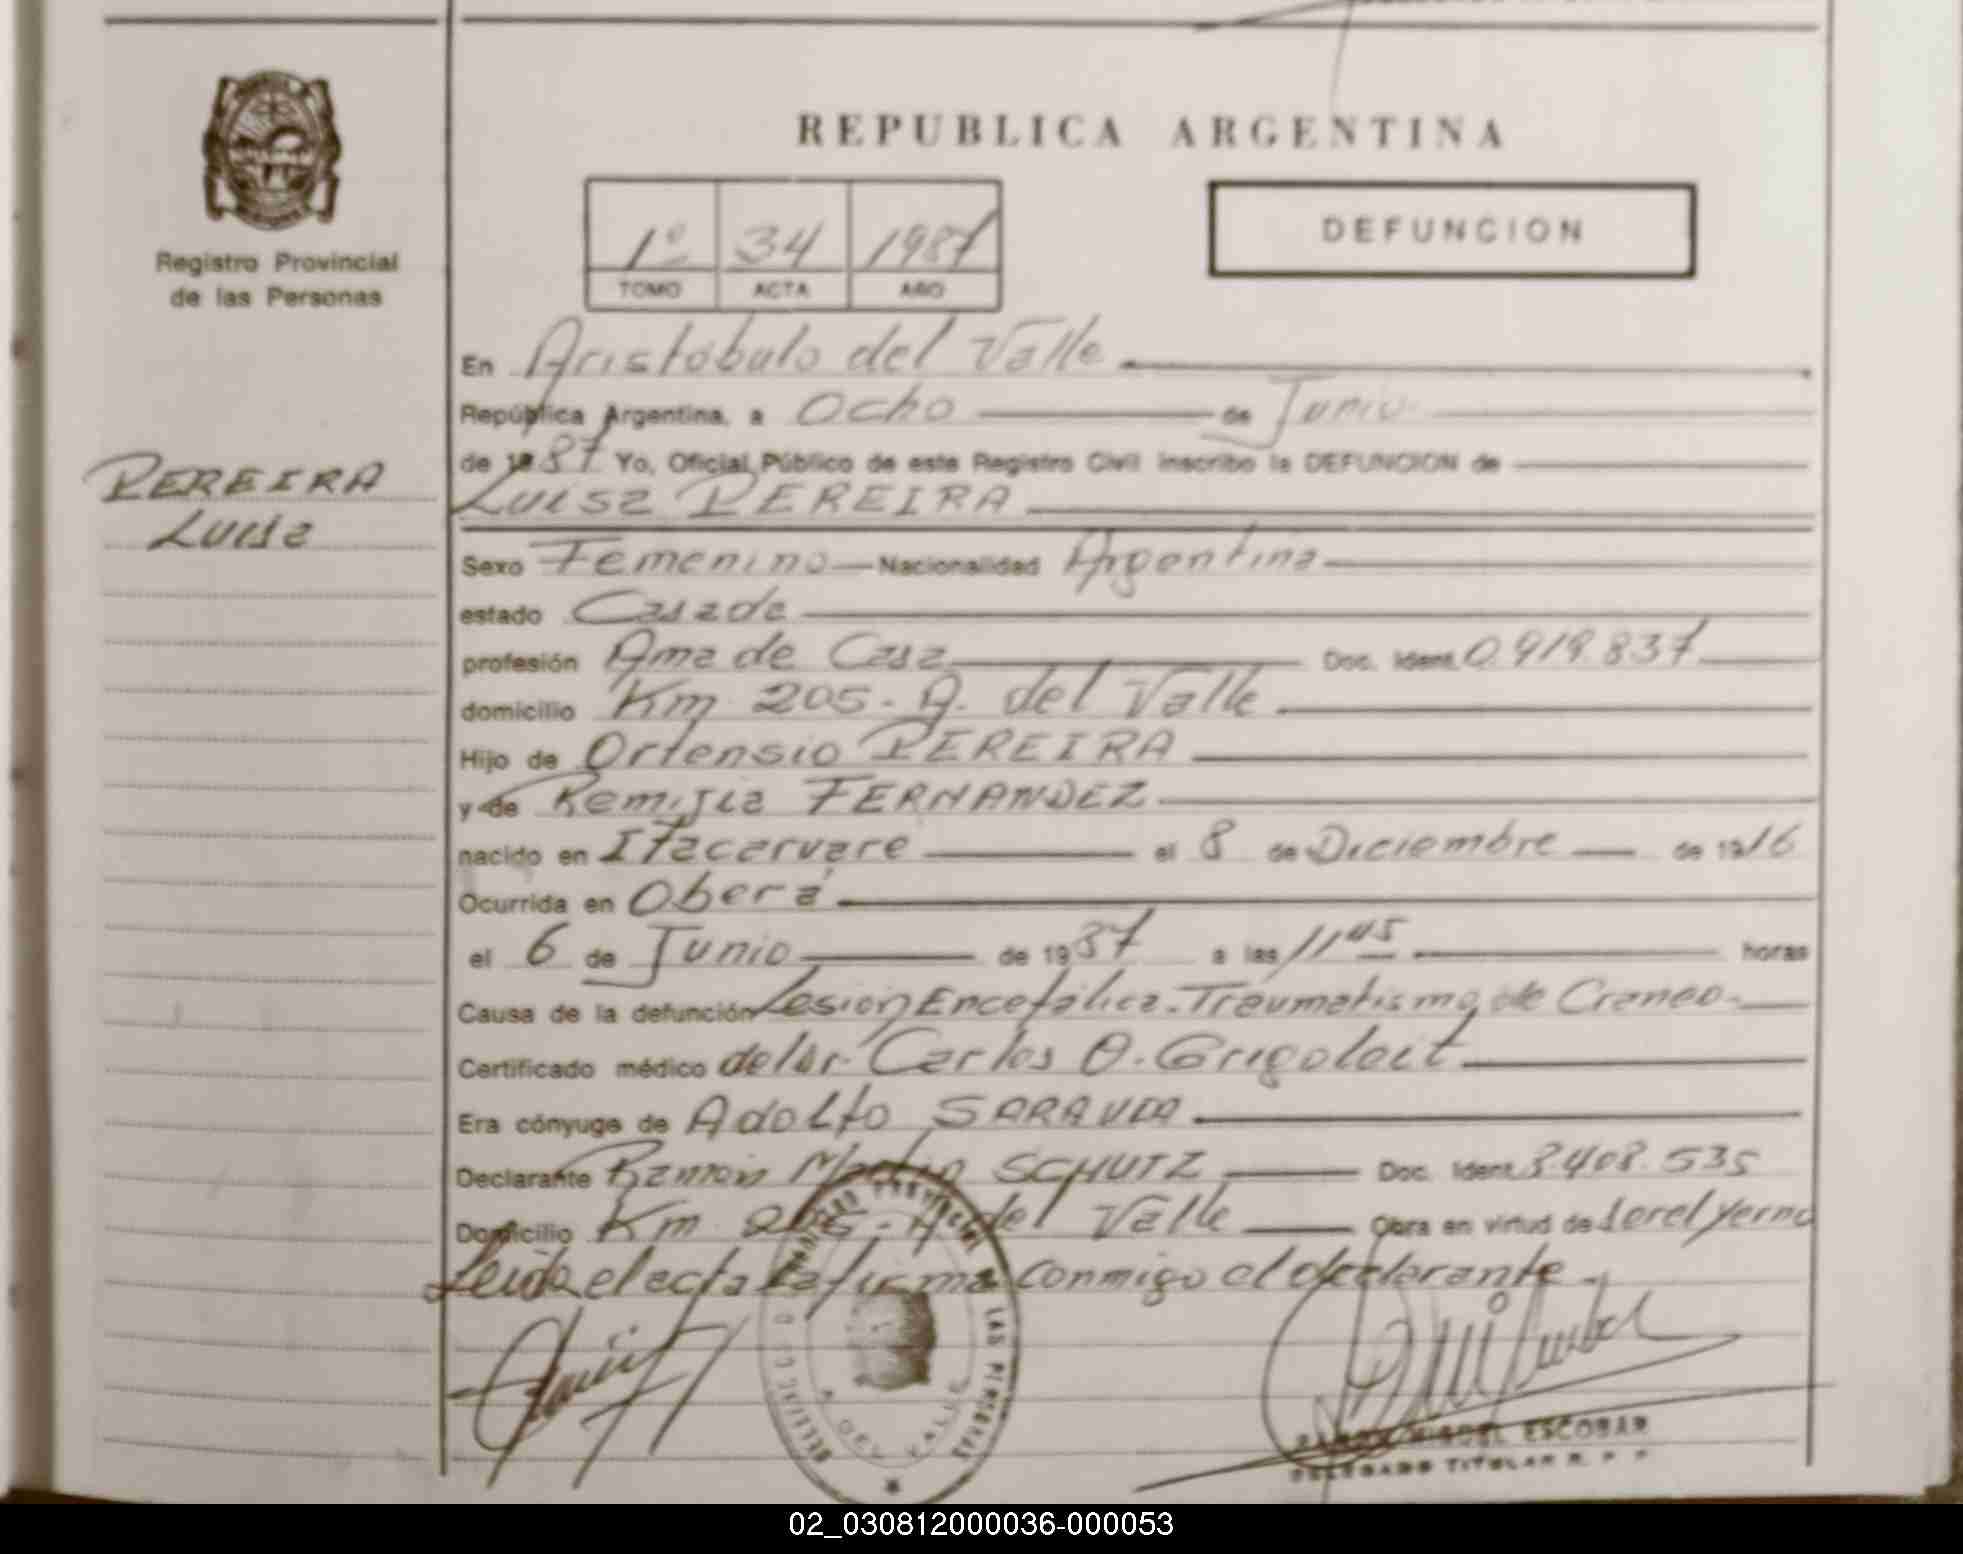 REPUBLICA ARGENTINA
Registro Provincial
de las Personas
1º 34 1987
TOMO ACTA AÑO
DEFUNCION
PEREIRA
Luisa
En Aristóbulo del Valle
República Argentina, a Ocho de Junio
de 1987 Yo, Oficial Público de este Registro Civil inscribo la DEFUNCION de
Luisa PEREIRA
Sexo Femenino Nacionalidad Argentina
estado Casada
profesión Ama de Casa Doc. Ident. 0.919.837
domicilio Km 205. A. del Valle
Hijo de Ortensio PEREIRA
y de Remigia FERNANDEZ
nacido en Itacaruare el 8 de Diciembre de 1916
Ocurrida en Oberá
el 6 de Junio de 1987 a las 11 45 horas
Causa de la defunción Lesión Encefálica. Traumatismo de Craneo.
Certificado médico del Dr. Carlos O. Grigoleit
Era cónyuge de Adolfo SARAVIA
Declarante Ramón Martin SCHUTZ Doc. Ident. 8.408.535
Domicilio Km 205. A del Valle Obra en virtud de ser el yerno
Leida el acta la firma conmigo el declarante.
REGISTRO PROVINCIAL DE LAS PERSONAS
A. DEL VALLE
MIGUEL ESCOBAR
DELEGADO TITULAR R. P. P.
02_030812000036-000053